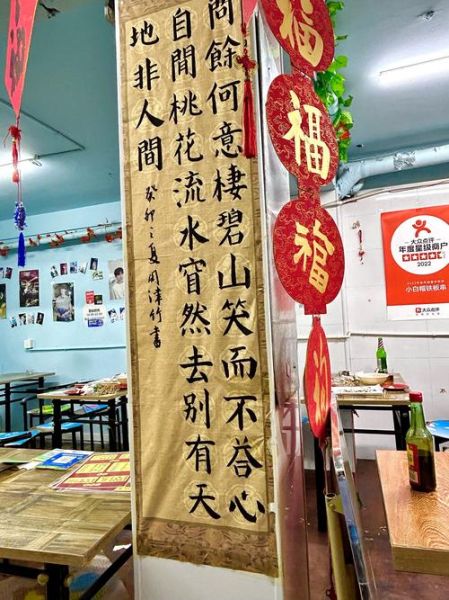 問餘何意棲碧山笑而不荅心
自閒桃花流水窅然去別有天
地非人間
癸卯之夏
福
福
福
福
大众点评
年度星级商户
2022
小白帽铁板串
大众点评